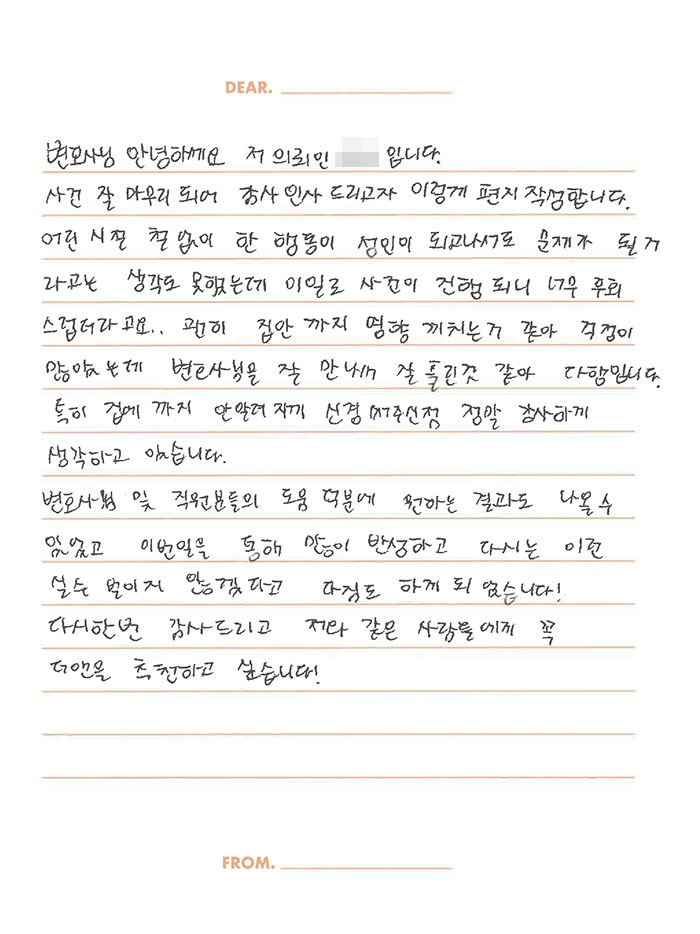 DEAR.
변호사님 안녕하세요 저 의뢰인 입니다.
사건 잘 마무리 되어 감사 인사 드리고자 이렇게 편지 작성합니다.
어린 시절 철 없이 한 행동이 성인이 되고나서도 문제가 될거
라고는 생각도 못했는데 이일로 사건이 진행 되니 너무 후회
스럽더라고요.. 괜히 집안 까지 영향 끼치는거 같아 걱정이
많았는데 변호사님을 잘 만나서 잘 풀린것 같아 다행입니다.
특히 집에 까지 안알려지게 신경 써주신점 정말 감사하게
생각하고 있습니다.
변호사님 및 직원분들의 도움 덕분에 원하는 결과도 나올수
있었고 이번일을 통해 많이 반성하고 다시는 이런
실수 벌이지 않겠다고 다짐도 하게 되었습니다!
다시한번 감사드리고 저와 같은 사람들에게 꼭
더앤을 추천하고 싶습니다!
FROM.